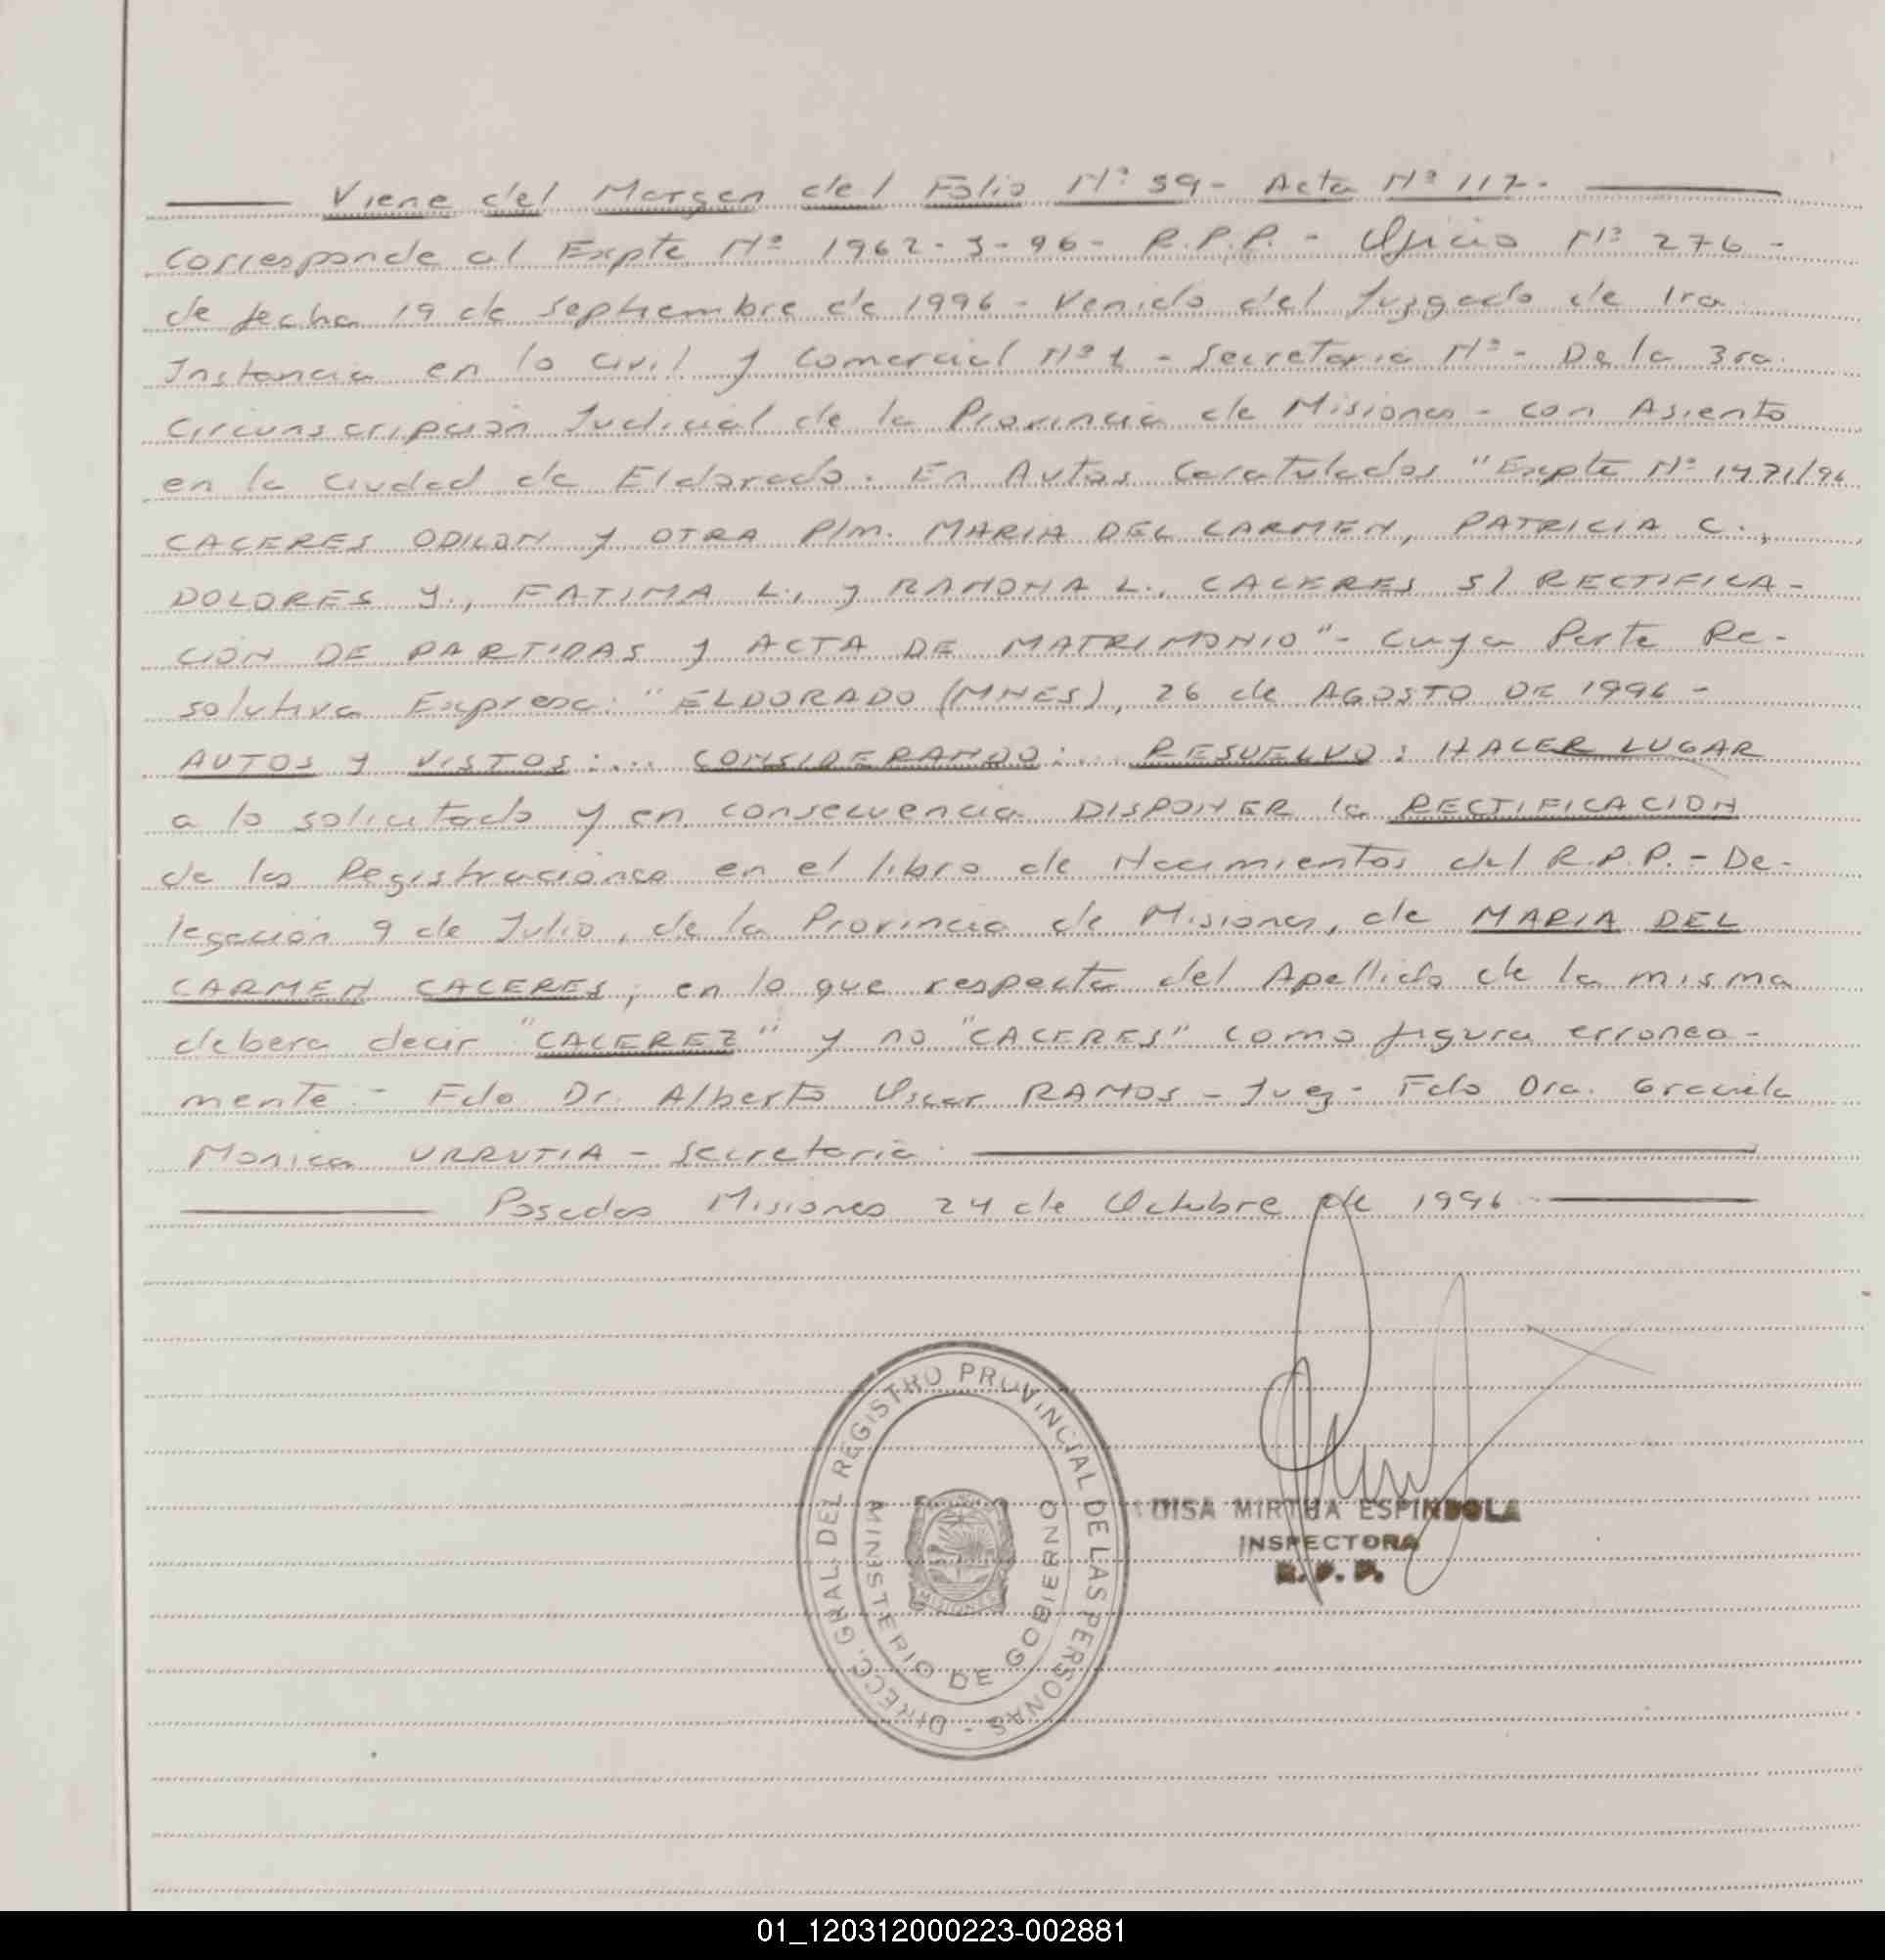 Viene del Margen del Folio Nº 59 - Acta Nº 117 -
Corresponde al Expte Nº 1962-J-96- R.P.P. - Oficio Nº 276 -
de fecha 19 de Septiembre de 1996 - Venido del Juzgado de 1ra.
Instancia en lo Civil y Comercial Nº 1 - Secretaria Nº - De la 3ra.
Circunscripción Judicial de la Provincia de Misiones - con Asiento
en la Ciudad de Eldorado. En Autos Caratulados "Expte Nº 1471/96
CACERES ODILON y OTRA P/m. MARIA DEL CARMEN, PATRICIA C.,
DOLORES Y., FATIMA L., y RAMONA L., CACERES S/ RECTIFICA-
CIÓN DE PARTIDAS y ACTA DE MATRIMONIO" - Cuya Parte Re-
solutiva Expresa: "ELDORADO (MNES), 26 de AGOSTO DE 1996 -
AUTOS Y VISTOS: ... CONSIDERANDO: ... RESUELVO: HACER LUGAR
a lo solicitado y en consecuencia DISPONER la RECTIFICACION
de las Registraciones en el libro de Nacimientos del R.P.P. - De-
legación 9 de Julio, de la Provincia de Misiones, de MARIA DEL
CARMEN CACERES, en lo que respecta del Apellido de la misma
debera decir "CACEREZ" y no "CACERES" como figura erronea-
mente - Fdo Dr. Alberto Oscar RAMOS - Juez - Fdo Dra. Graciela
Monica URRUTIA - Secretaria.
Posadas Misiones 24 de Octubre de 1996
DIRECC. GRAL DEL REGISTRO PROVINCIAL DE LAS PERSONAS -
MINISTERIO DE GOBIERNO
MISIONES
MIRTHA ESPINDOLA
INSPECTORA
R.P.P.
01_120312000223-002881